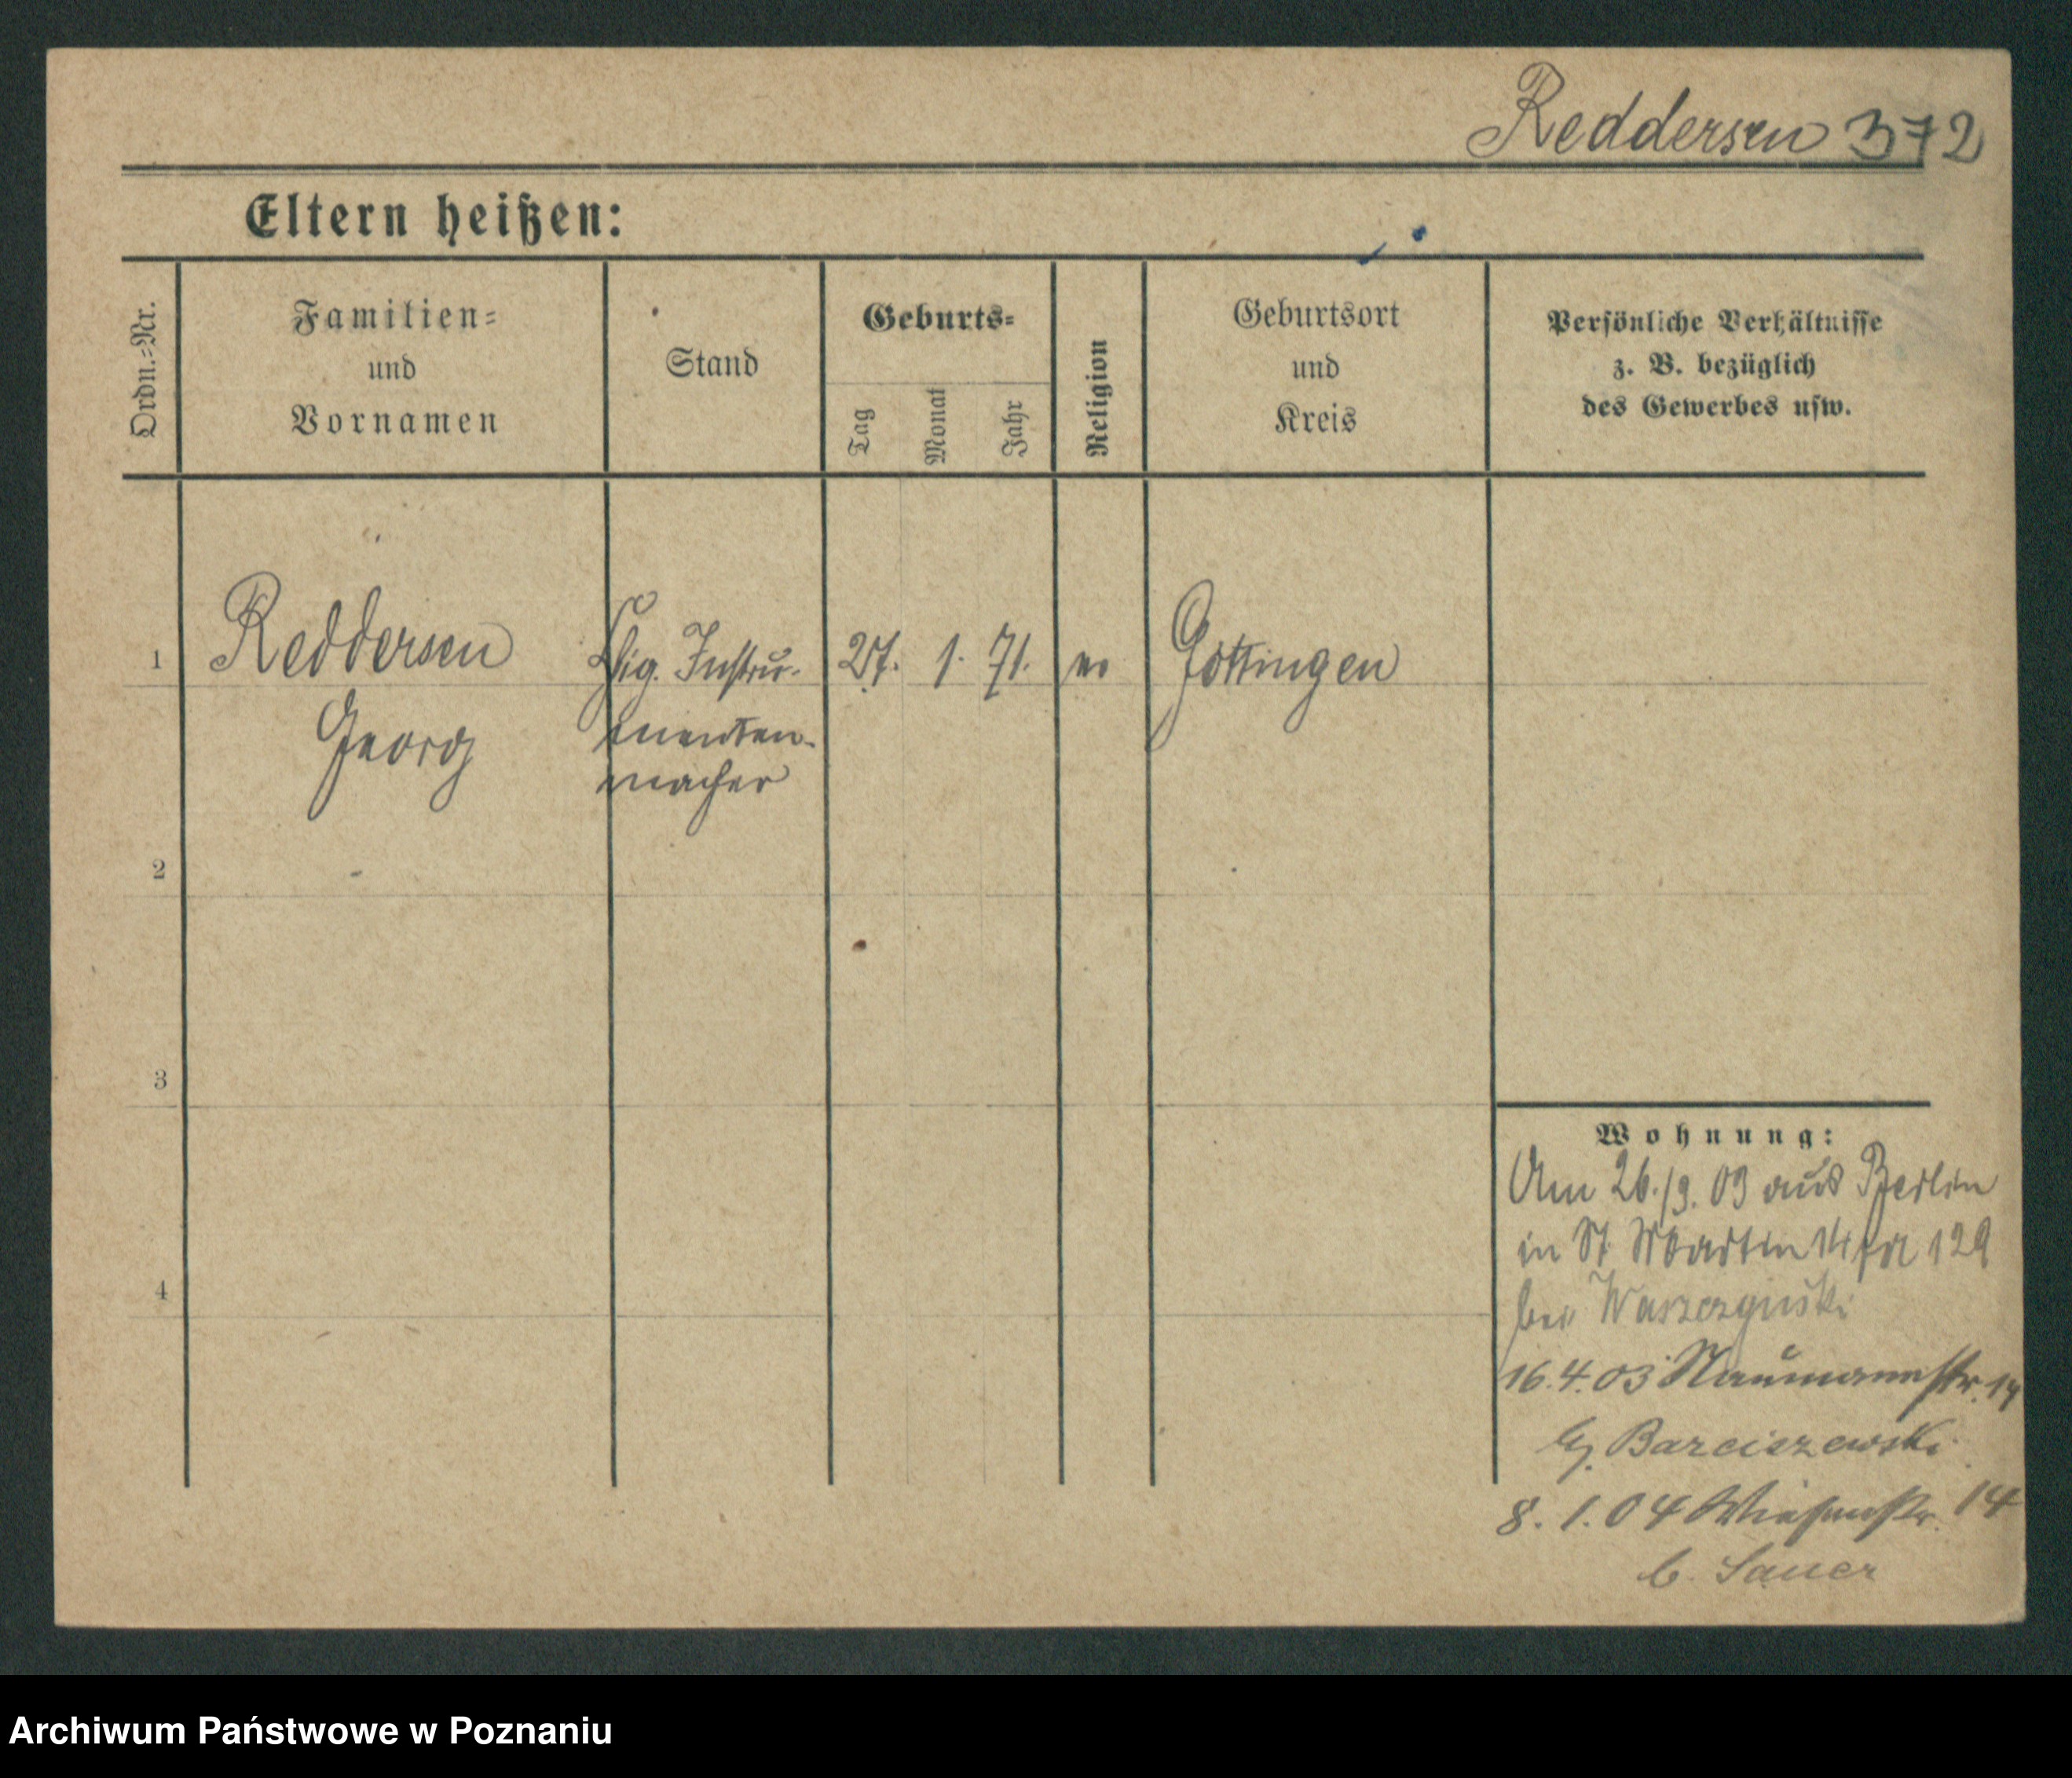 Reddersen 372
Eltern heißen:
Ordn.-Nr.
Familien-
und
Vornamen
Stand
Geburts-
Tag
Monat
Jahr
Religion
Geburtsort
und
Kreis
Persönliche Verhältnisse
z. B. bezüglich
des Gewerbes usw.
1 Reddersen Instru- 27. 1. 71. ev Göttingen
Georg menten-
macher
2
3
4
Wohnung:
Am 26./3. 03 aus Berlin
in St. Martin 14 129
bei
16.4.03 Naumannstr. 14
b. Barciszewski
8. 1. 04 Wiesenstr. 14
b. Sauer
Archiwum Państwowe w Poznaniu